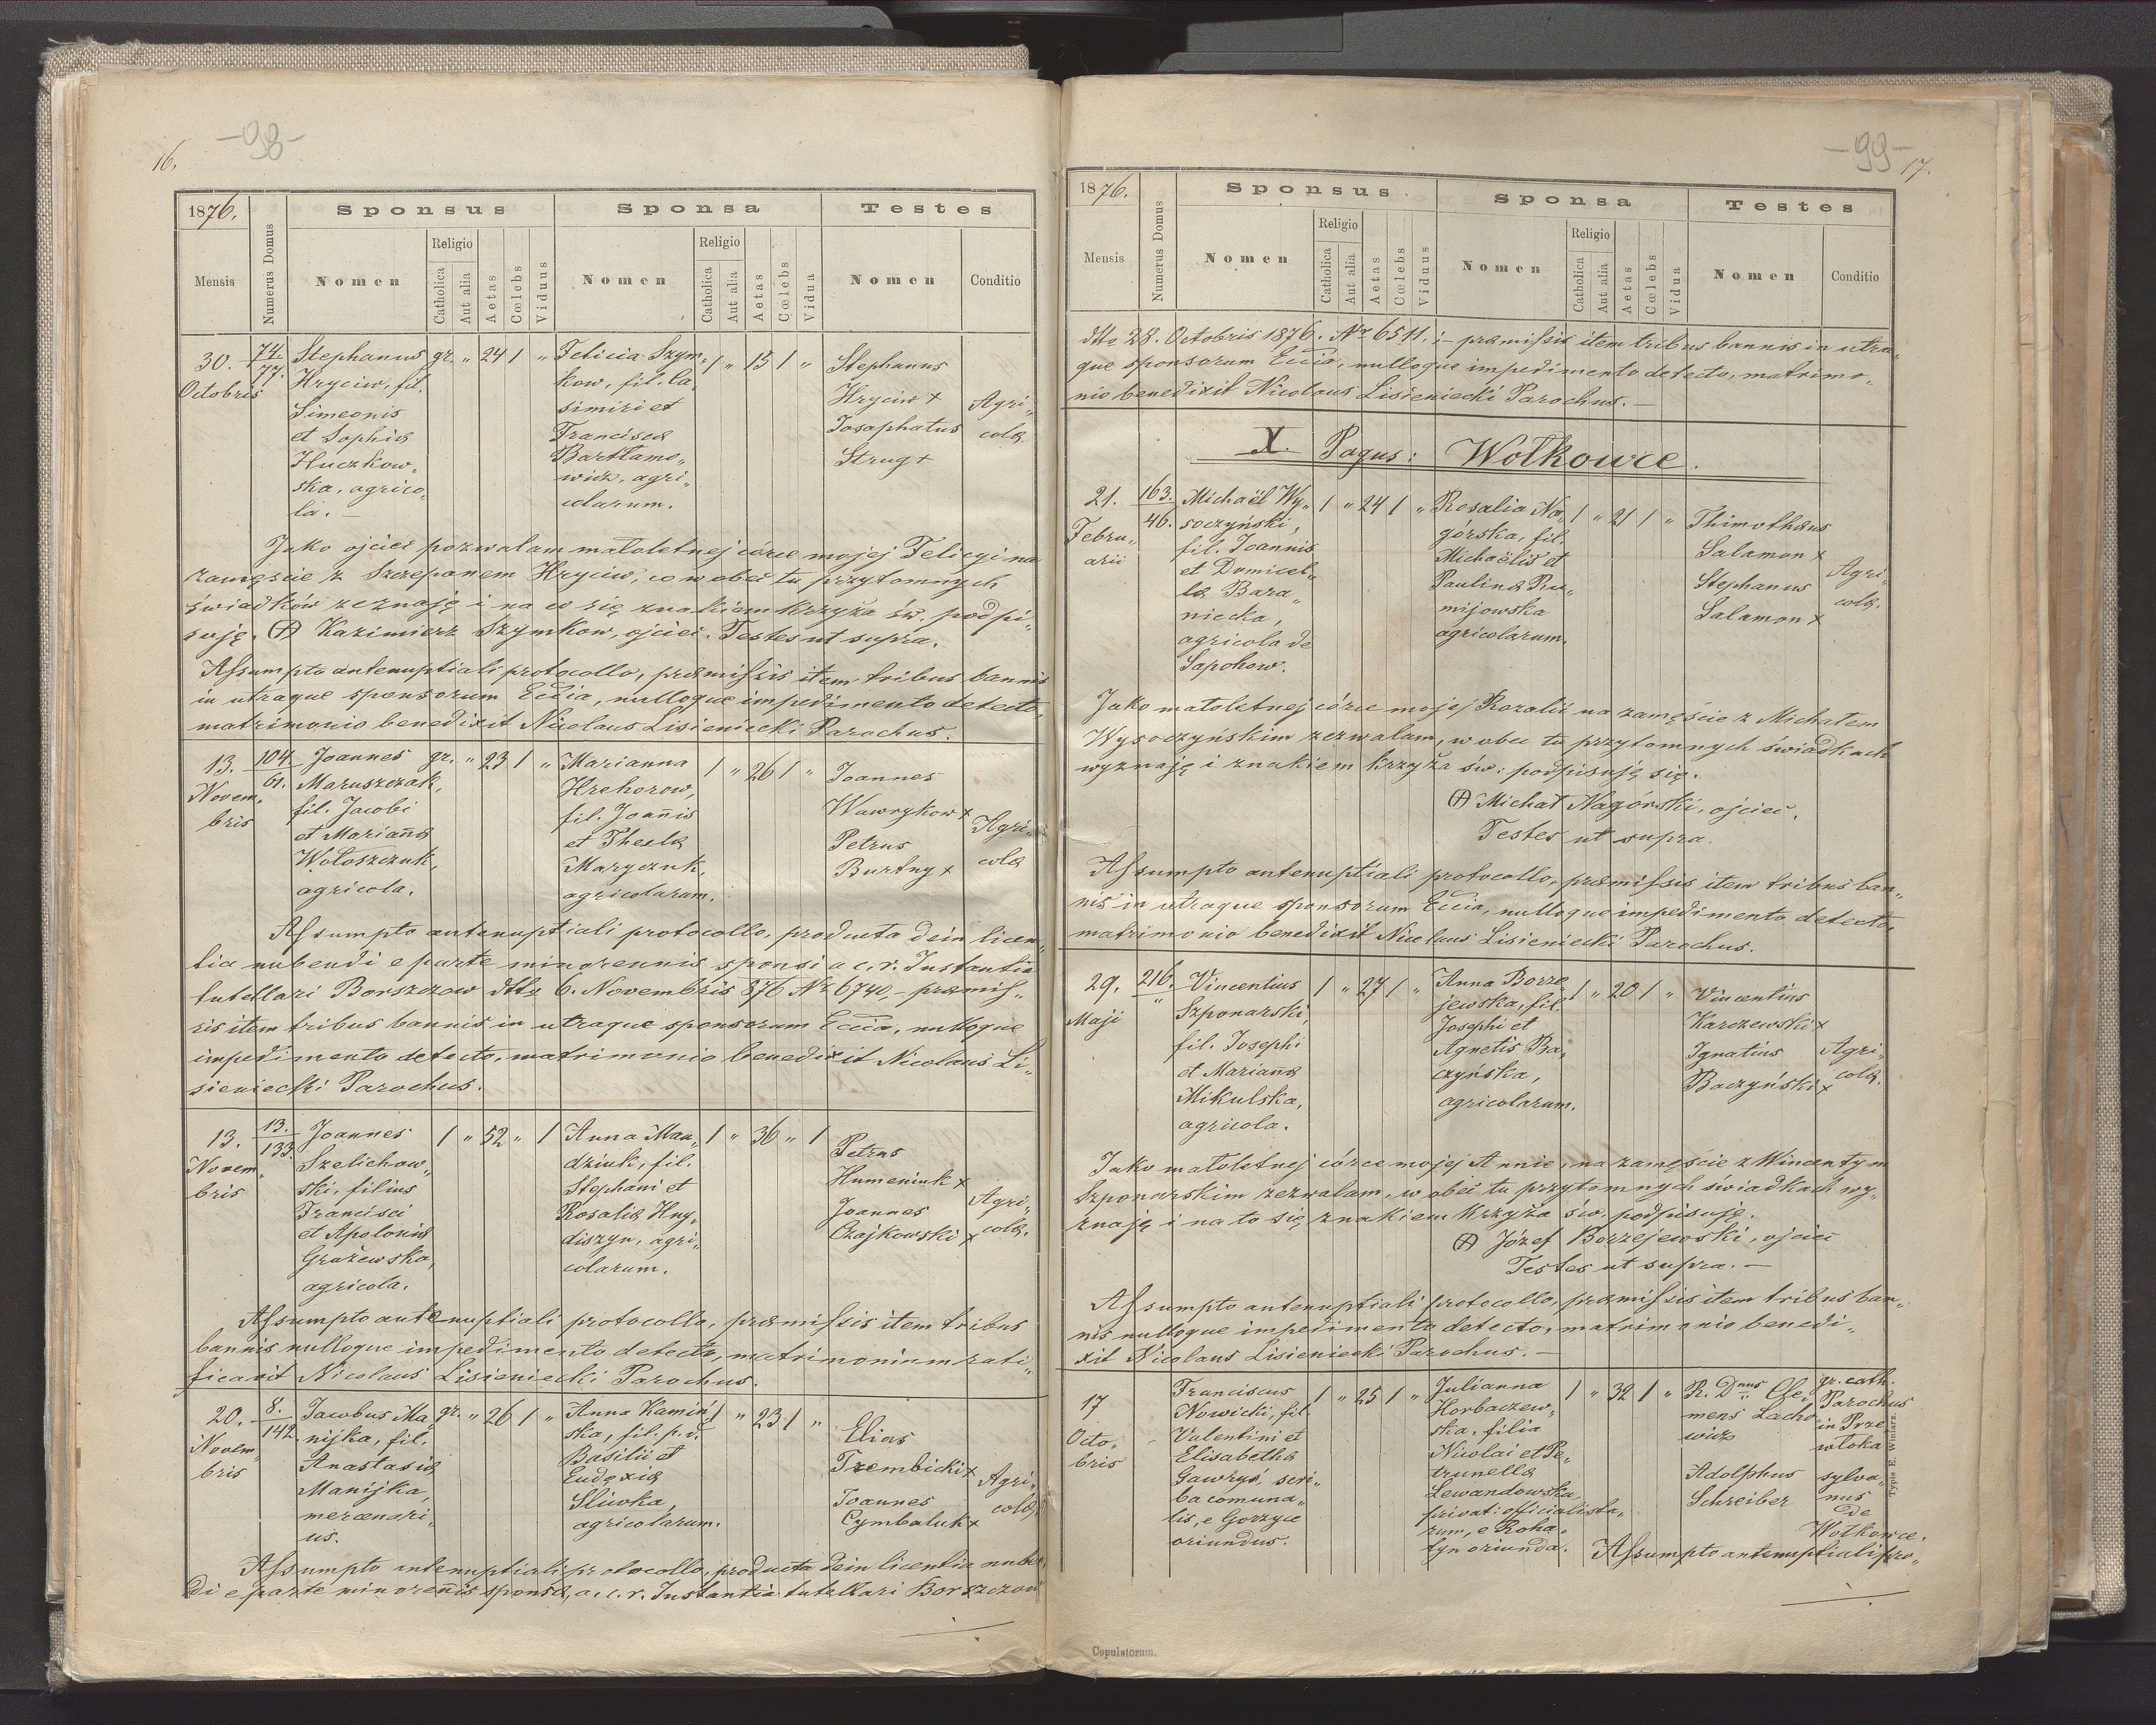 16.
-98-
1876.
Mensis
Numerus Domus
Sponsus
Nomen
Religio
Catholica
Aut alia
Aetas
Cœlebs
Viduus
Sponsa
Nomen
Religio
Catholica
Aut alia
Aetas
Cœlebs
Vidua
Testes
Nomen
Conditio
30.
Octobris
74
77.
Stephanus
Hryciw, fil.
Simeonis
et Sophiæ
Huczkow„
ska, agrico„
la. —
gr. „ 24 1 „
Felicia Szym„
kow, fil. Ca„
simiri et
Franciscæ
Bartłamo„
wicz, agri„
colarum.
1 „ 15 1 „
Stephanus
Hryciw +
Josaphatus
Strug +
Agri„
colæ
Jako ojciec pozwalam małoletnej córce mojej Felicyi na
zamęście z Szczepanem Hryciw, co w obec tu przytomnych
świadków zeznaję i na co się znakiem krzyża św. podpi„
suję. (+) Kazimierz Szymkow, ojciec. Testes ut supra.
Assumpto antenuptiali protocollo, præmissis item tribus bannis
in utraque sponsorum Ecc̄ia, nulloque impedimento detecto,
matrimonio benedixit Nicolaus Lisieniecki Parochus.
13.
Novem„
bris
104
61.
Joannes
Maruszczak,
fil. Jacobi
et Marian̄æ
Wołoszczuk,
agricola.
gr. „ 23 1 „
Marianna
Hrehorow,
fil. Joan̄is
et Theclæ
Maryczuk,
agricolarum.
1 „ 26 1 „
Joannes
Wawrykow +
Petrus
Burtny +
Agri„
colæ
Assumpto antenuptiali protocollo, producta dein licen„
tia nubendi e parte minorennis sponsi a c. r. Instantia
tutellari Borszczow dtto 6. Novembris 876 Nr 6740,– præmis„
sis item tribus bannis in utraque sponsorum Ecc̄ia, nulloque
impedimento detecto, matrimonio benedixit Nicolaus Li„
sieniecki Parochus.
13.
Novem„
bris
13.
133.
Joannes
Szelichow„
ski, filius
Francisci
et Apoloniæ
Grużewska,
agricola.
1 „ 52 „ 1
Anna Man„
dziuk, fil.
Stephani et
Rosaliæ Hny„
diszyn, agri„
colarum.
1 „ 36 „ 1
Petrus
Humeniuk +
Joannes
Czajkowski +
Agri„
colæ.
Assumpto antenuptiali protocollo, præmissis item tribus
bannis nulloque impedimento detecto, matrimonium rati„
ficavit Nicolaus Lisieniecki Parochus.
20.
Novem„
bris
8.
142.
Jacobus Ma„
nijka, fil.
Anastasiæ
Manijka,
mercenari„
us.
gr. „ 26 1 „
Anna Kamiń„
ska, fil. p. d.
Basilii et
Eudoxiæ
Śliwka,
agricolarum.
1 „ 23 1 „
Elias
Trembicki +
Joannes
Cymbaluk +
Agri„
colæ
Assumpto antenuptiali protocollo, producta dein licentia nuben„
di e parte minoren̄is sponsæ, a c. r. Instantia tutellari Borszczow
-99-
17.
1876.
Mensis
Numerus Domus
Sponsus.
Nomen
Religio
Catholica
Aut alia
Aetas
Cœlebs
Viduus
Sponsa
Nomen
Religio
Catholica
Aut alia
Aetas
Cœlebs
Vidua
Testes
Nomen
Conditio
dtto 28. Octobris 1876. Nr 6511. i– præmissis item tribus bannis in utra„
que sponsorum Ecc̄ia, nulloque impedimento detecto, matrimo„
nio benedixit Nicolaus Lisieniecki Parochus. —
X. Pagus: Wołkowce.
21.
Febru„
arii
163.
46.
Michaël Wy„
soczyński,
fil. Joannis
et Domicel„
læ Bara„
niecka,
agricola de
Sapohow.
1 „ 24 1 „
Rosalia Na„
górska, fil.
Michaëlis et
Paulinæ Ru„
mijowska
agricolarum.
1 „ 21 1 „
Thimothæus
Salamon +
Stephanus
Salamon +
Agri„
colæ.
Jako małoletnej córce mojej Rozalii na zamęście z Michałem
Wysoczyńskim zezwalam, w obec tu przytomnych świadkach
wyznaję i znakiem krzyża św: podpisuję się.
(+) Michał Nagórski, ojciec.
Testes ut supra.
Assumpto antenuptiali protocollo, præmissis item tribus ban„
nis in utraque sponsorum Ecc̄ia, nulloque impedimento detecto,
matrimonio benedixit Nicolaus Lisieniecki Parochus.
29.
Maji
216.
„
Vincentius
Szponarski,
fil. Josephi
et Mariannæ
Mikulska,
agricola.
1 „ 27 1 „
Anna Borze„
jewska, fil.
Josephi et
Agnetis Ba„
czyńska,
agricolarum.
1 „ 20 1 „
Vincentius
Karczewski +
Ignatius
Baczyński +
Agri„
colæ.
Jako małoletnej córce mojej Annie, na zamęście z Wincentym
Szponarskim zezwalam, w obec tu przytomnych świadkach wy„
znaję i na to się znakiem krzyża św. podpisuję.
(+) Józef Borzejewski, ojciec
Testes ut supra. —
Assumpto antenuptiali protocollo, præmissis item tribus ban„
nis nulloque impedimento detecto, matrimonio benedi„
xit Nicolaus Lisieniecki Parochus. —
17
Octo„
bris
Franciscus
Nowicki, fil.
Valentini et
Elisabethæ
Gawryś, scri„
ba comuna„
lis, e Gorzyce
oriundus.
1 „ 25 1 „
Julianna
Horbaczew„
ska, filia
Nicolai et Pe„
trunellæ
Lewandowska,
privat: officialista„
rum, e Roha„
tyn oriunda.
1 „ 32 1 „
R. Dnus Cle„
mens Lacho„
wicz
Adolphus
Schreiber
gr. cath.
Parochus
in Prze„
włoka
sylva„
nus
de
Wołkowce.
Assumpto antenuptiali pro„
Typis E. Winiarz.
Copulatorum.